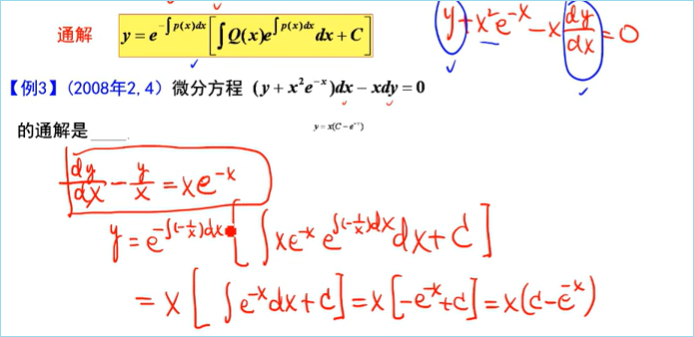 通解 y = e^{-∫p(x)dx}[∫Q(x)e^{∫p(x)dx}dx + C]
y + x²e^{-x} - x dy/dx = 0
【例3】(2008年2,4) 微分方程 (y + x²e^{-x})dx - xdy = 0
的通解是____ y = x(C - e^{-x})
dy/dx - y/x = xe^{-x}
y = e^{-∫(-1/x)dx}[∫xe^{-x} e^{∫(-1/x)dx}dx + C]
= x[∫e^{-x}dx + C] = x[-e^{-x} + C] = x(C - e^{-x})